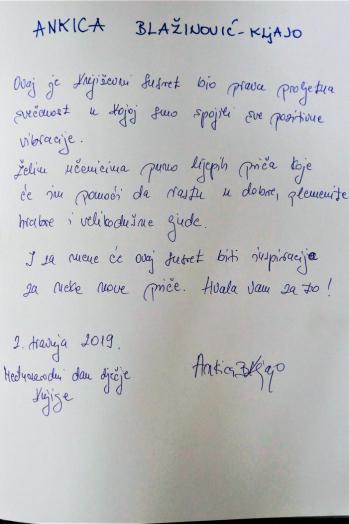 ANKICA BLAŽINOVIĆ-KLJAJO
Ovaj je književni susret bio prava proljetna
svečanost u kojoj smo spojili sve pozitivne
vibracije.
Želim učenicima puno lijepih priča koje
će im pomoći da rastu u dobre, plemenite
hrabre i velikodušne ljude.
I za mene će ovaj susret biti inspiracija
za neke nove priče. Hvala vam za to!
2. travnja 2019.
Međunarodni dan dječje
knjige
Ankica BKljajo